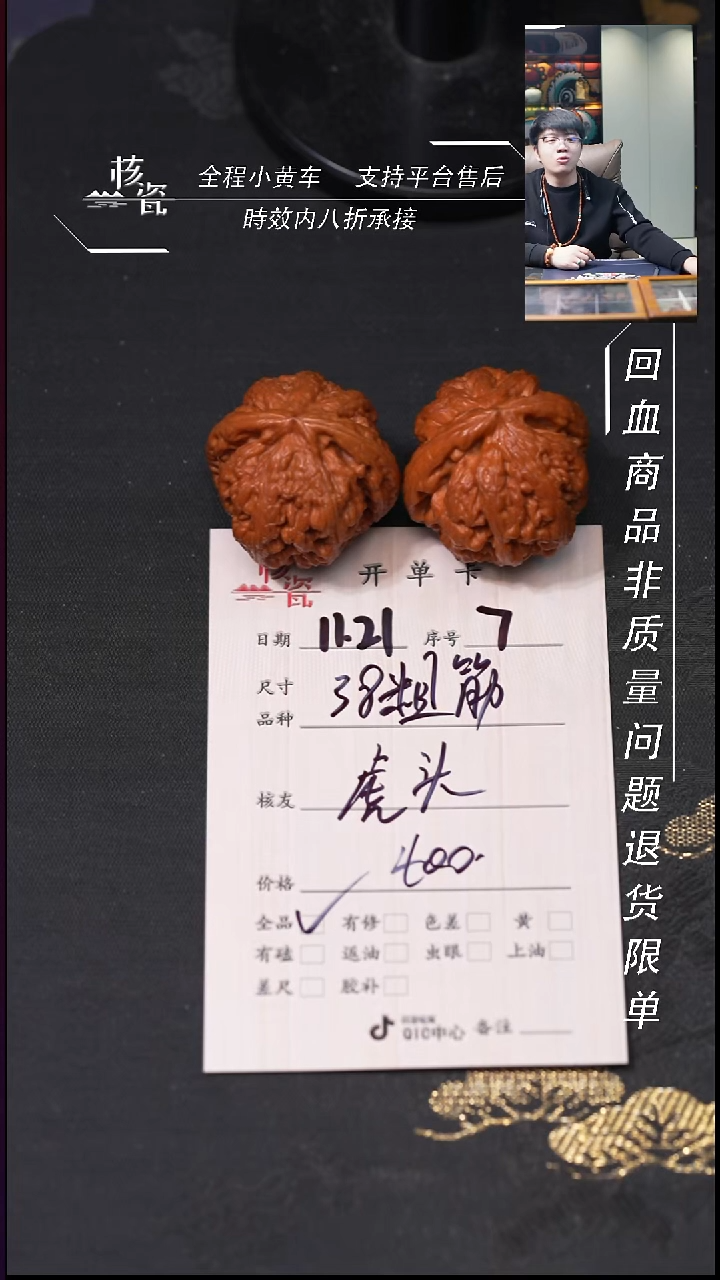 核瓷
全程小黄车 支持平台售后
時效内八折承接
回血商品非质量问题退货限单
核瓷 开单卡
日期 11.21 序号 7
尺寸 38粗筋
品种
核友 虎头
价格 400.
全品 ✓ 有修 色差 黄
有磕 返油 虫眼 上油
差尺 胶补
QIC中心 备注